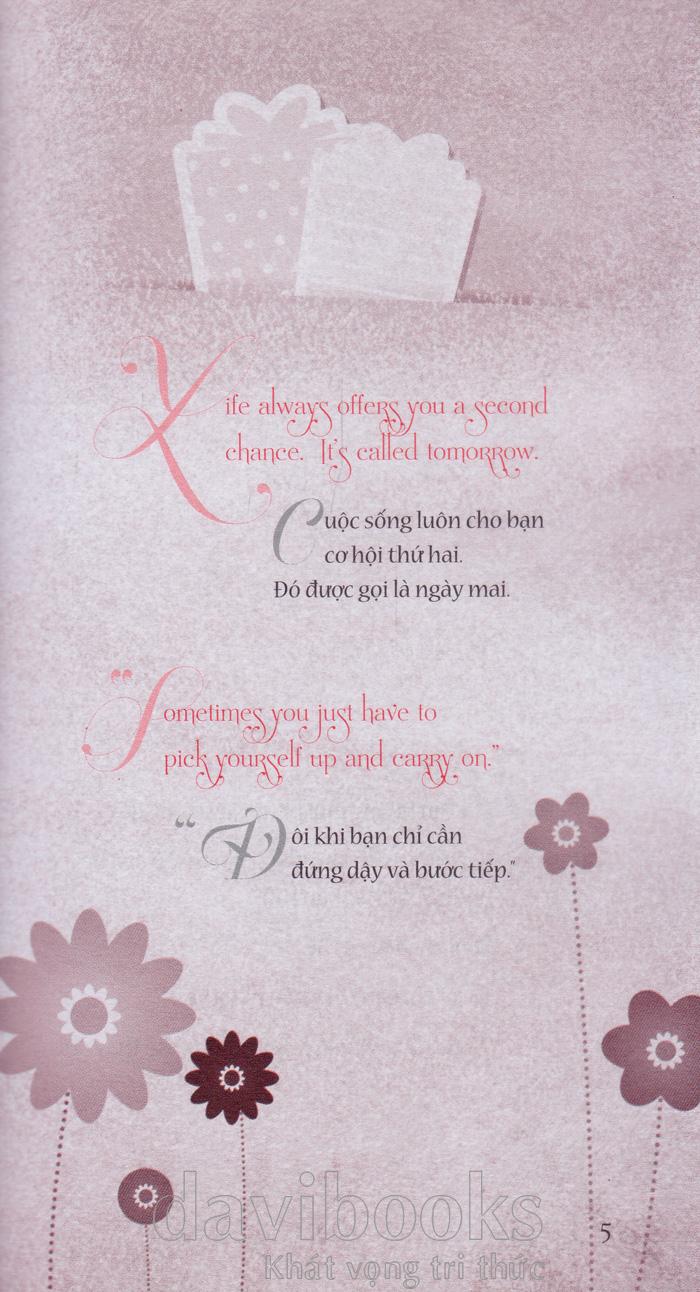 Life always offers you a second
chance. It's called tomorrow.
Cuộc sống luôn cho bạn
cơ hội thứ hai.
Đó được gọi là ngày mai.
"Sometimes you just have to
pick yourself up and carry on."
"Đôi khi bạn chỉ cần
đứng dậy và bước tiếp."
davibooks
Khát vọng tri thức
5